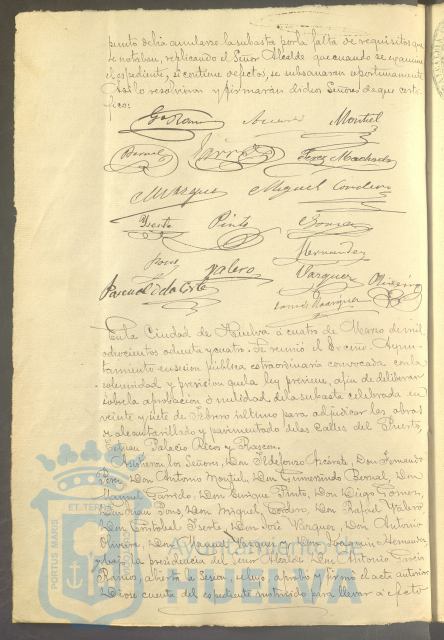 punto debia anularse la subasta por la falta de requisitos que
se notaban, replicando el Señor Alcalde que cuando se examine
el espediente, si contiene defectos, se subsanaran oportunamente
Asi lo resolvieron y firmarán dichos Señores de que certi-
fico:
Montiel
Bernal Garrido Perez Machado
Marquez Miguel Cordero
Yserte Pinto Gomez
Pons Valero Hernandez
Vazquez Oliveira
En la Ciudad de Huelva á cuatro de Marzo de mil
ochocientos ochenta y cuatro. Se reunió el Excmo. Ayun-
tamiento en sesion pública extraordinaria convocada con la
solemnidad y prevision que la ley previene, afin de deliberar
sobre la aprobacion ó nulidad de la subasta celebrada en
veinte y siete de Febrero último para adjudicar las obras
de alcantarillado y pavimentado de las Calles del Puerto,
Palacio Ricos y Rascon.
Asistieron los Señores, Don Ildefonso Alcárate, Don Fernando
Perez, Don Antonio Montiel, Don Gumersindo Bernal, Don
Manuel Garrido, Don Enrique Pinto, Don Diego Gomez,
Don Juan Pons, Don Miguel Cordero, Don Rafael Valero,
Don Cristobal Yserte, Don José Vazquez, Don Antonio
Oliveira, Don Manuel Vazquez y Don Joaquin Hernandez
y bajo la presidencia del Señor Alcalde Don Antonio Garcia
Ramos, abierta la Sesion se leyó, aprobó y firmó el acta anterior
Diose cuenta del espediente instruido para llevar á efecto
PORTUS MARIS
ET TERRAE
Ayuntamiento de
HUELVA